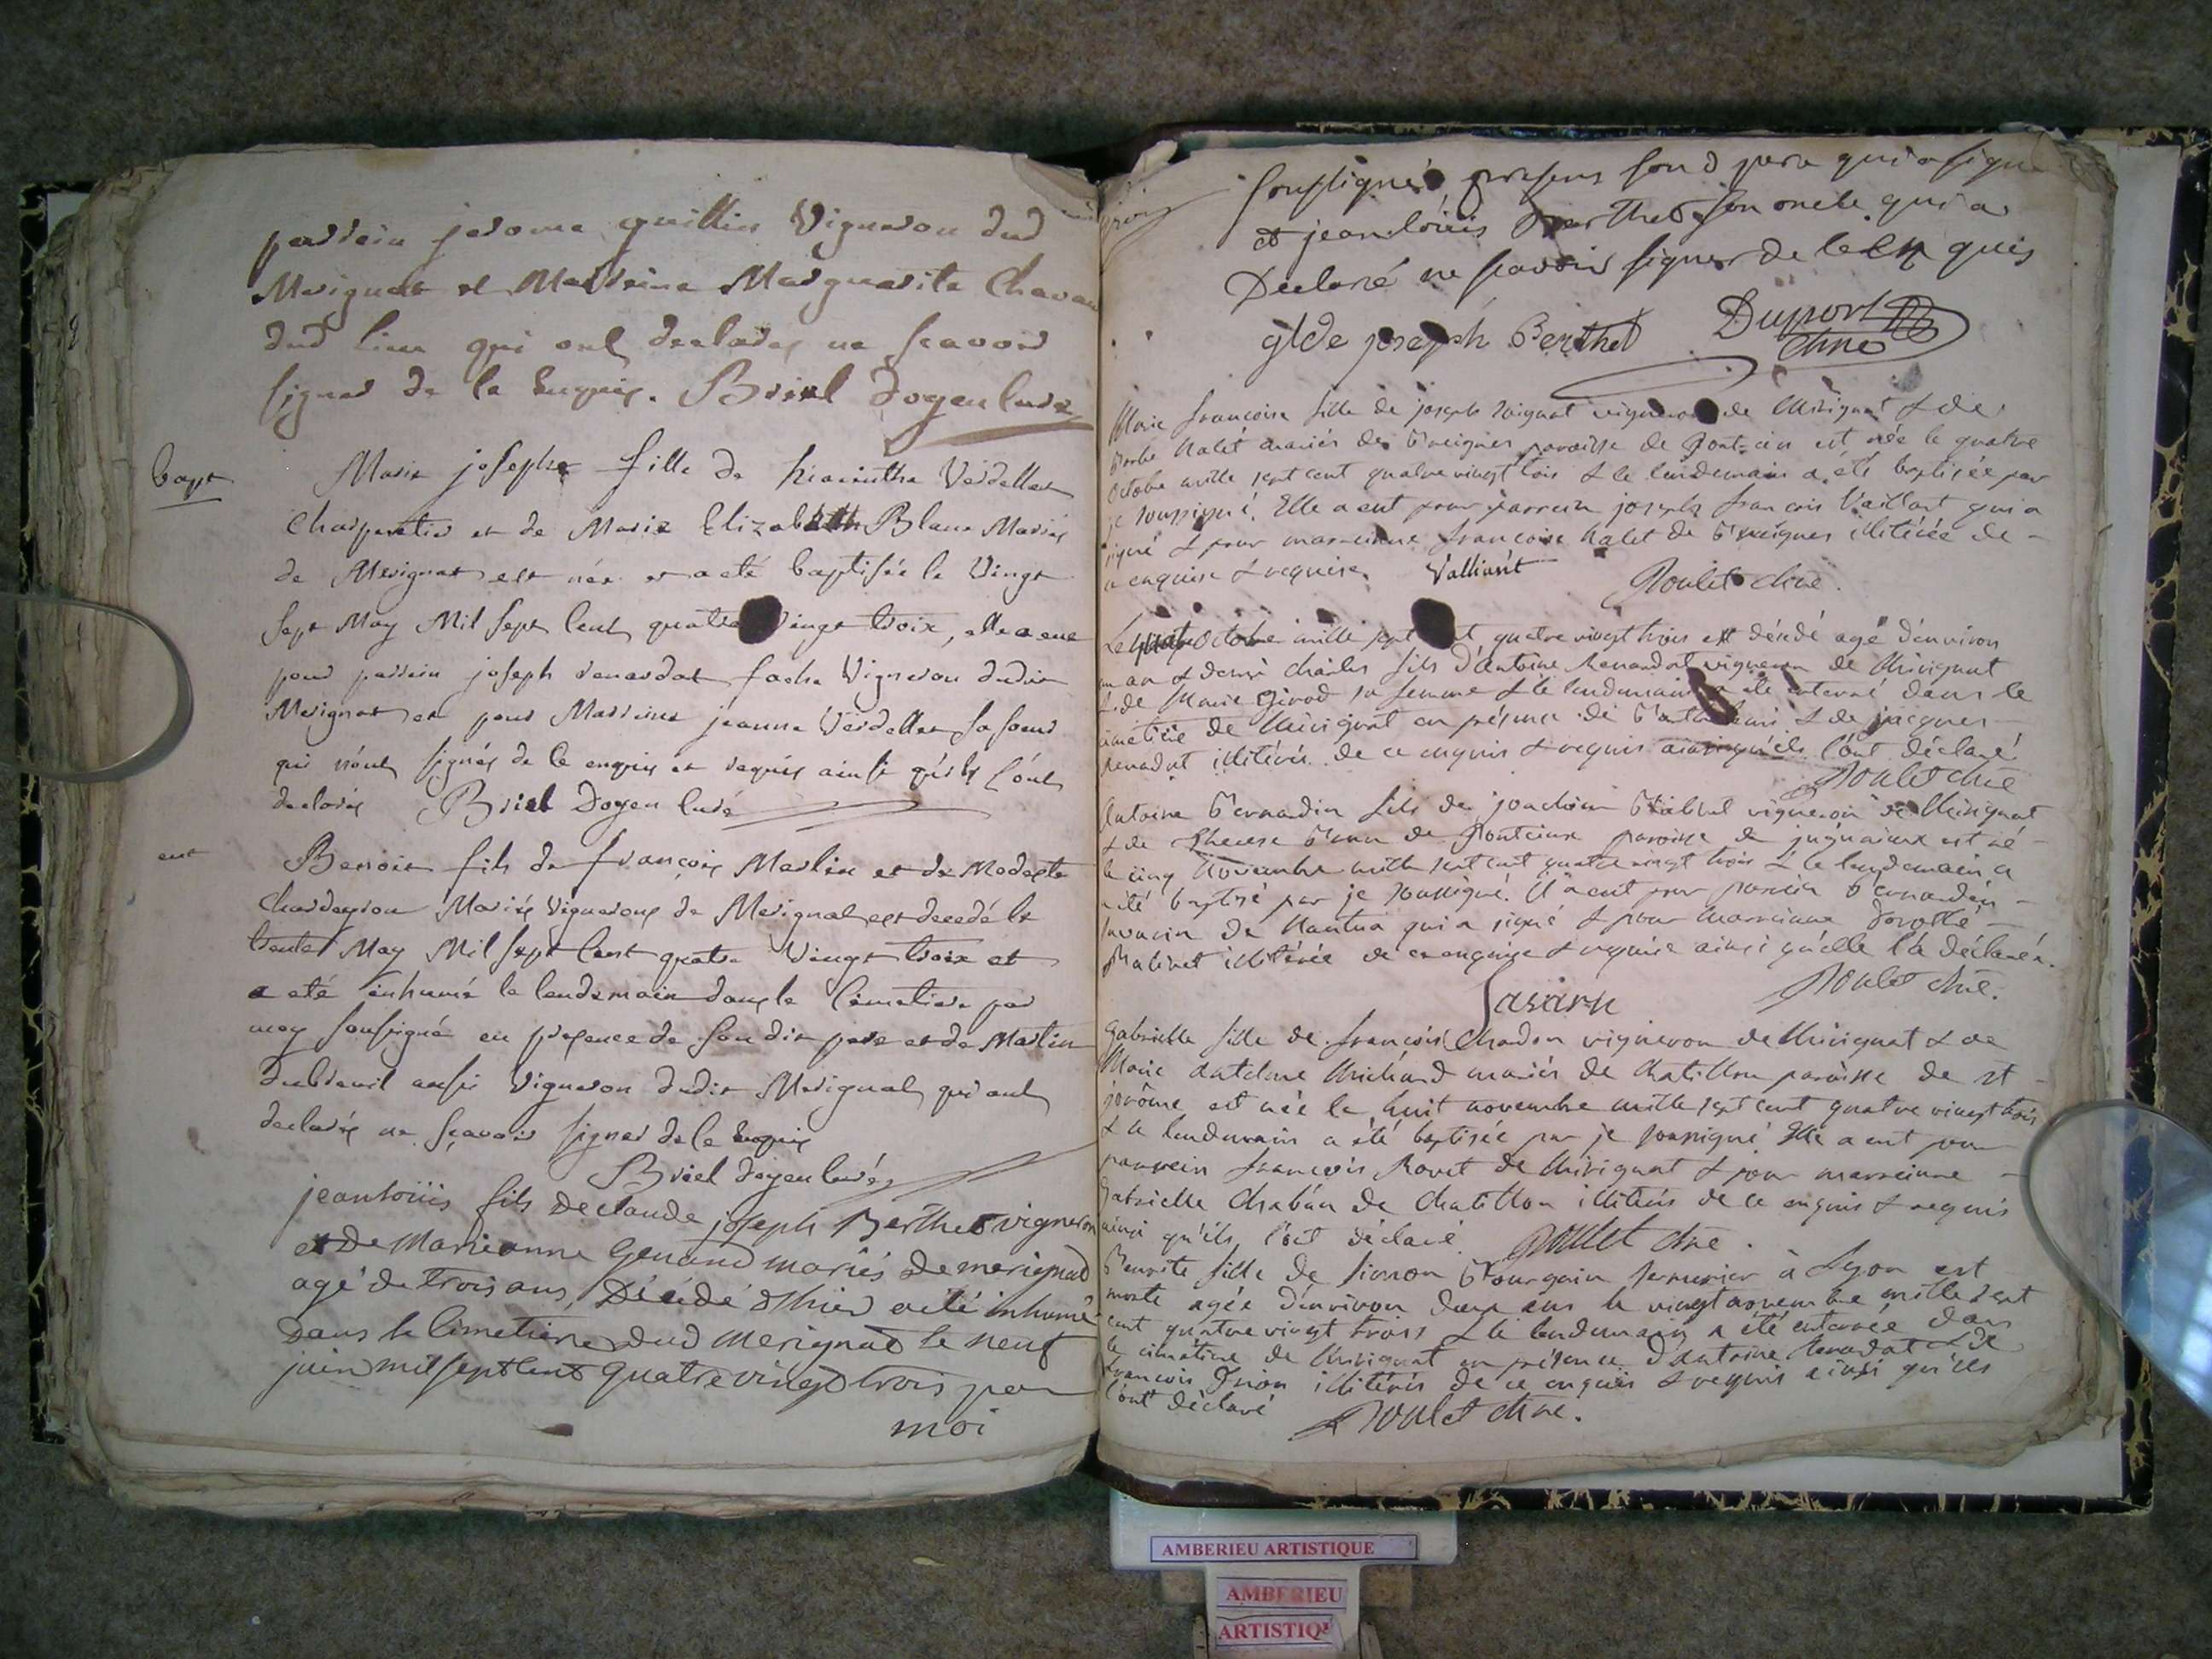 parrein jerome guillin Vigneron dud
Merignat et Marreine Marguerite Chavan
dud lieu qui ont declarés ne scavoir
signer de ce enquis. Briel doyen curé
bapt
Marie josephe fille de hiacinthe Verdellet
Charpentier et de Marie Elizabeth Blanc Mariés
de Merignat est née et a eté baptisée le Vingt
Sept May Mil Sept Cent quatre Vingt troix, elle a eue
pour parrein joseph renardat Vigneron dudit
Merignat et pour Marreine jeanne Verdellet sa soeur
qui n'ont signés de ce enquis et requis ainsi qu'ils l'ont
declarés Briel Doyen Curé
ent
Benoit fils de françois Merlin et de Modeste
Chardeyron Mariés Vignerons de Merignat est decedé le
trente May Mil sept Cent quatre Vingt troix et
a eté inhumé le lendemain dans le Cimetiere par
moy soussigné en presence de son dit pere et de Martin
Dubreuil aussi Vigneron dudit Merignat qui ont
declarés ne sçavoir signer de ce enquis
Briel doyen curé
jean loüis fils de claude joseph Berthet vigneron
et de Marieanne Genand mariés de merignat
agé de trois ans, Décédé d'hier a eté inhumé
dans le Cimetiere dud merignat le neuf
juin mil sept cent quatre vingt trois par
moi
soussigné, presens son d pere qui a signé
et jean loüis Berthet son oncle qui a
Declaré ne scavoir signer de ce enquis
glde joseph Berthet Duport
Curé
Marie francoise fille de joseph vigneron de Mérignat & de
Nalét mariés de paroisse de Pont-ain est née le quatre
Octobre mille sept cent quatre vingt trois & le lendemain a été baptisée par
je soussigné. Elle a eut pour parrein joseph francois Vaillant qui a
signé & pour marreinne francoise Nalet de illitérée de
ce enquise & requise. Valliant Poulet curé.
Le Octobre mille sept cent quatre vingt trois est décédé agé d'environ
un an & demi charles fils d'Antoine Renardat vigneron de Mérignat
& de Marie Girod sa femme & le lendemain a été enterré dans le
cimetiere de Mérignat en présence de & de jacques
renardat illitérés de ce enquis & requis ainsi qu'ils l'ont déclaré
Poulet curé
Antoine Bernardin fils de joachim vigneron de Mérignat
& de Therese de paroisse de jujurieux est né
le cinq Novembre mille sept cent quatre vingt trois & le lendemain a
été baptisé par je soussigné. Il a eut pour parrein Bernardin
Savarin de Nantua qui a signé & pour marreinne
illitérée de ce enquise & requise ainsi qu'elle l'a déclaré.
Savarin Poulet curé.
Gabrielle fille de francois Chardon vigneron de Mérignat & de
Marie Antelme Michard mariés de Chatillon paroisse de st
jérôme est née le huit novembre mille sept cent quatre vingt trois
& le lendemain a été baptisée par je soussigné Elle a eut pour
parrein francois Rovet de Mérignat & pour marreinne
Gabrielle de Chatillon illitérés de ce enquis & requis
ainsi qu'ils l'ont déclaré. Poulet curé.
Benoite fille de simon Bourgain à Lyon est
morte agée d'environ deux ans le vingt novembre mille sept
cent quatre vingt trois & le lendemain a été enterrée dans
le cimetiere de Mérignat en présence d'Antoine Renardat & de
francois illitérés de ce enquis & requis ainsi qu'ils
l'ont déclaré Poulet curé.
AMBERIEU ARTISTIQUE
AMBERIEU
ARTISTIQ